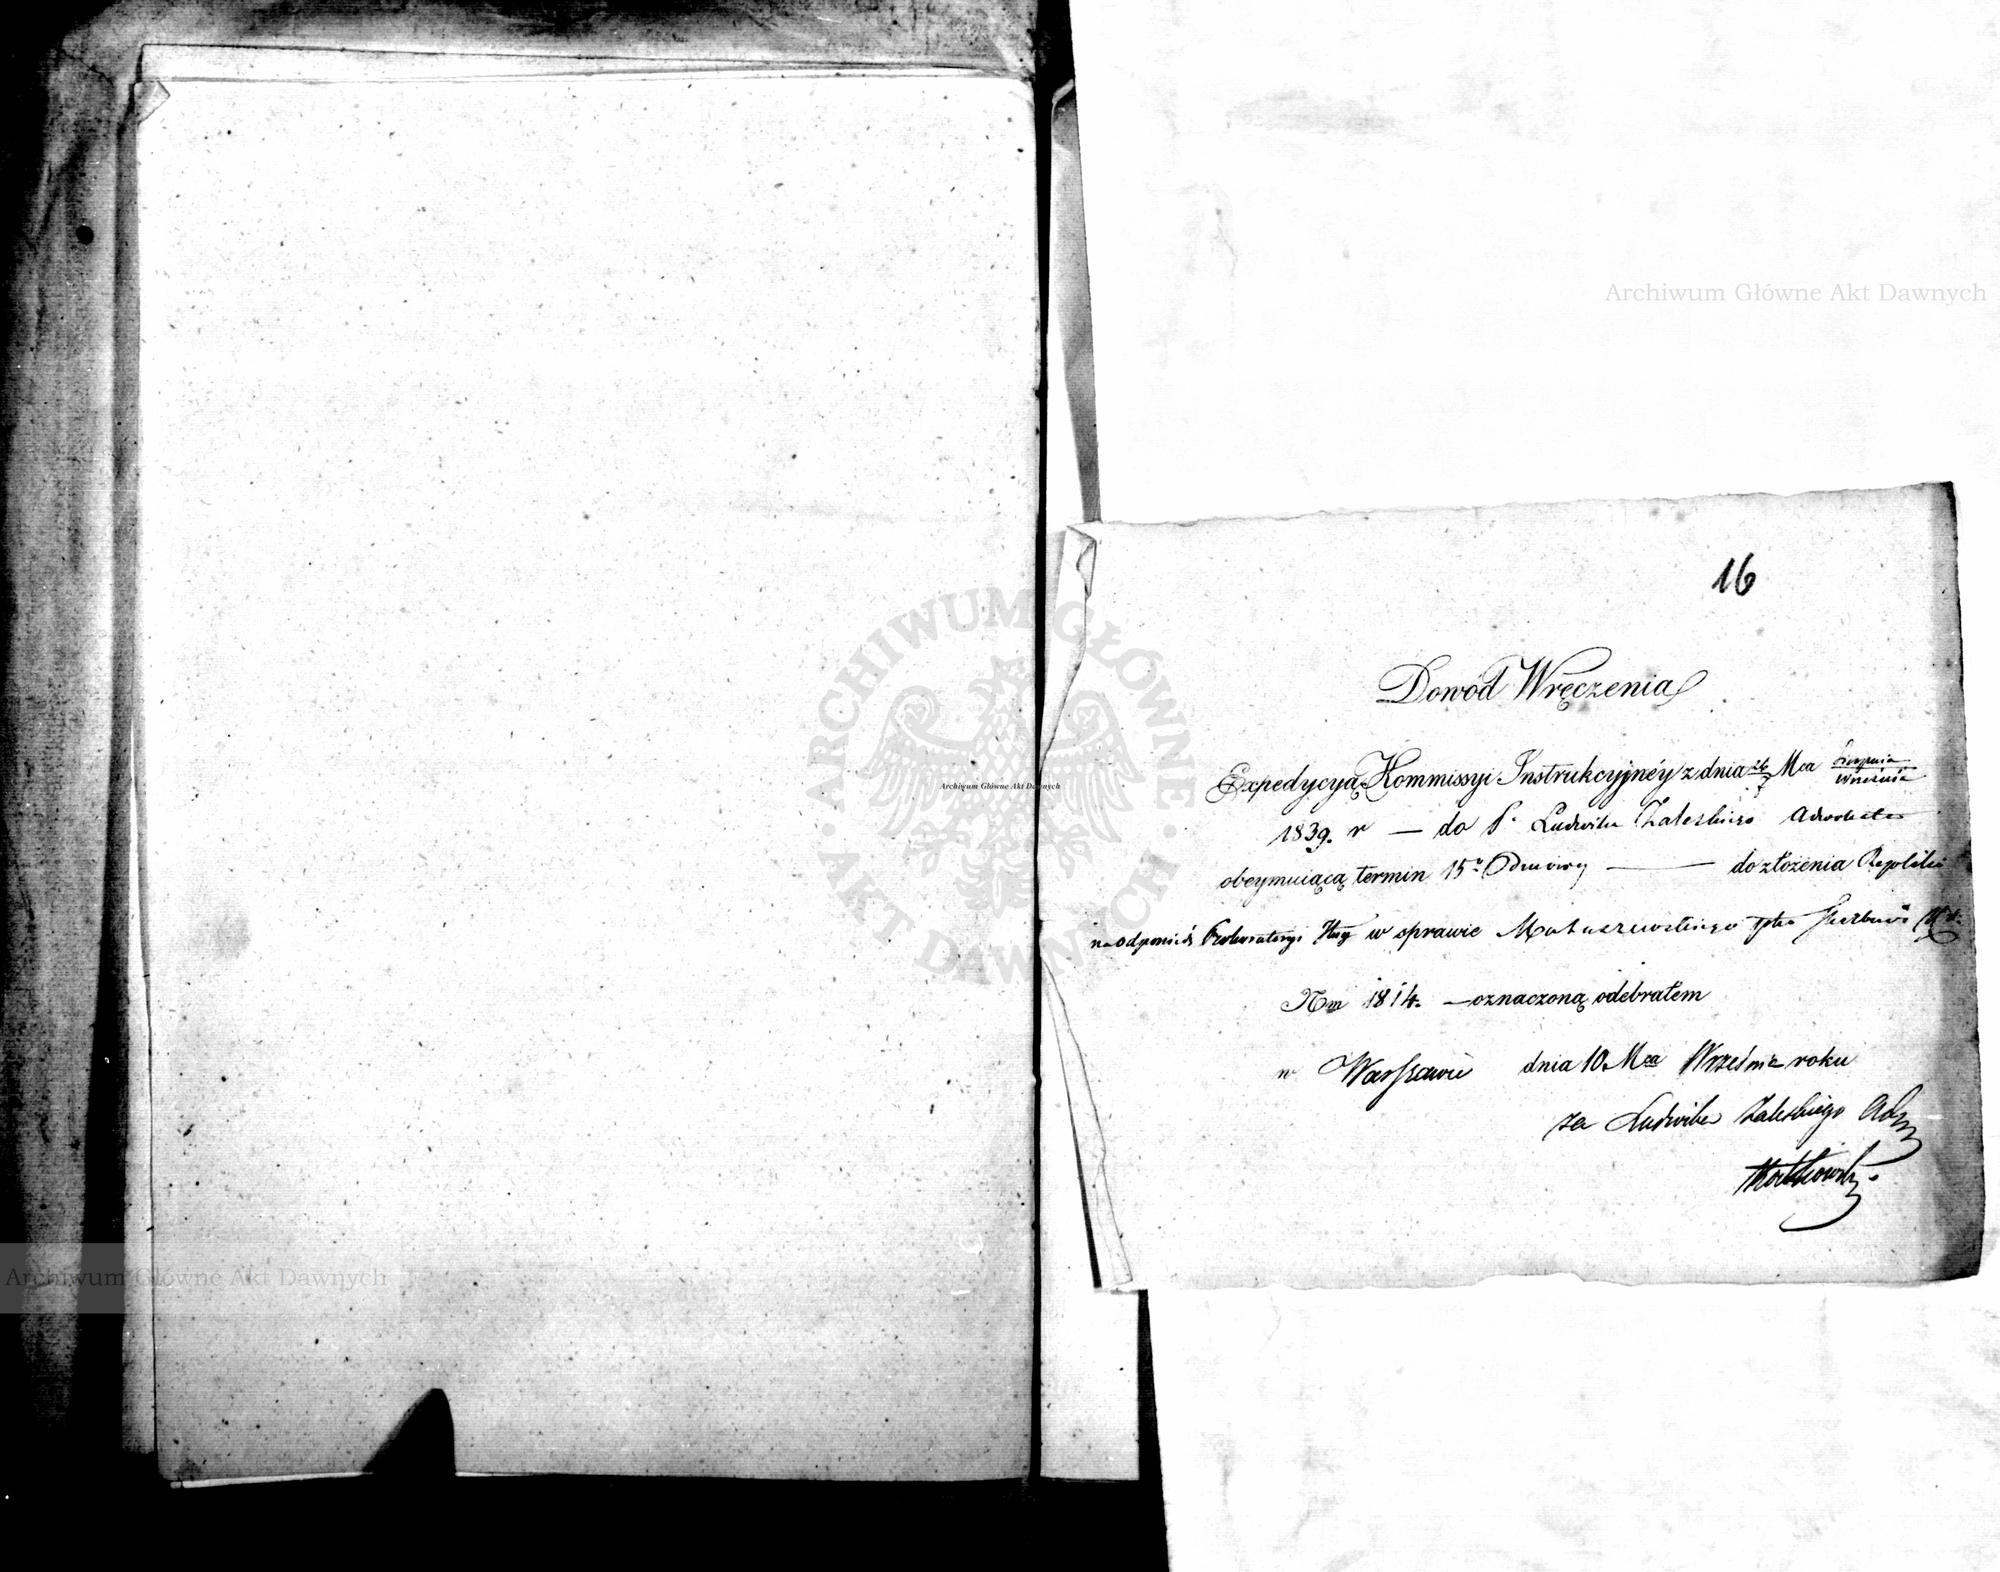 Archiwum Główne Akt Dawnych
16
Dowód Wręczenia
Expedycyą Kommissyi Instrukcyjnéy z dnia 26/7 Mca Sierpnia/Września
1839. r — do P. Ludwika Zaleskiego Adwokata
obeymuiącą termin 15u Dniowy — do złożenia Repliki
na odpowiedź Prokuratoryi w sprawie Matuszewskiego Skarbowi
Nm 1814. — oznaczoną odebrałem
w Warszawie dnia 10 Mca Września roku
za Ludwika Zaleskiego
ARCHIWUM GŁÓWNE AKT DAWNYCH
Archiwum Główne Akt Dawnych
Archiwum Główne Akt Dawnych